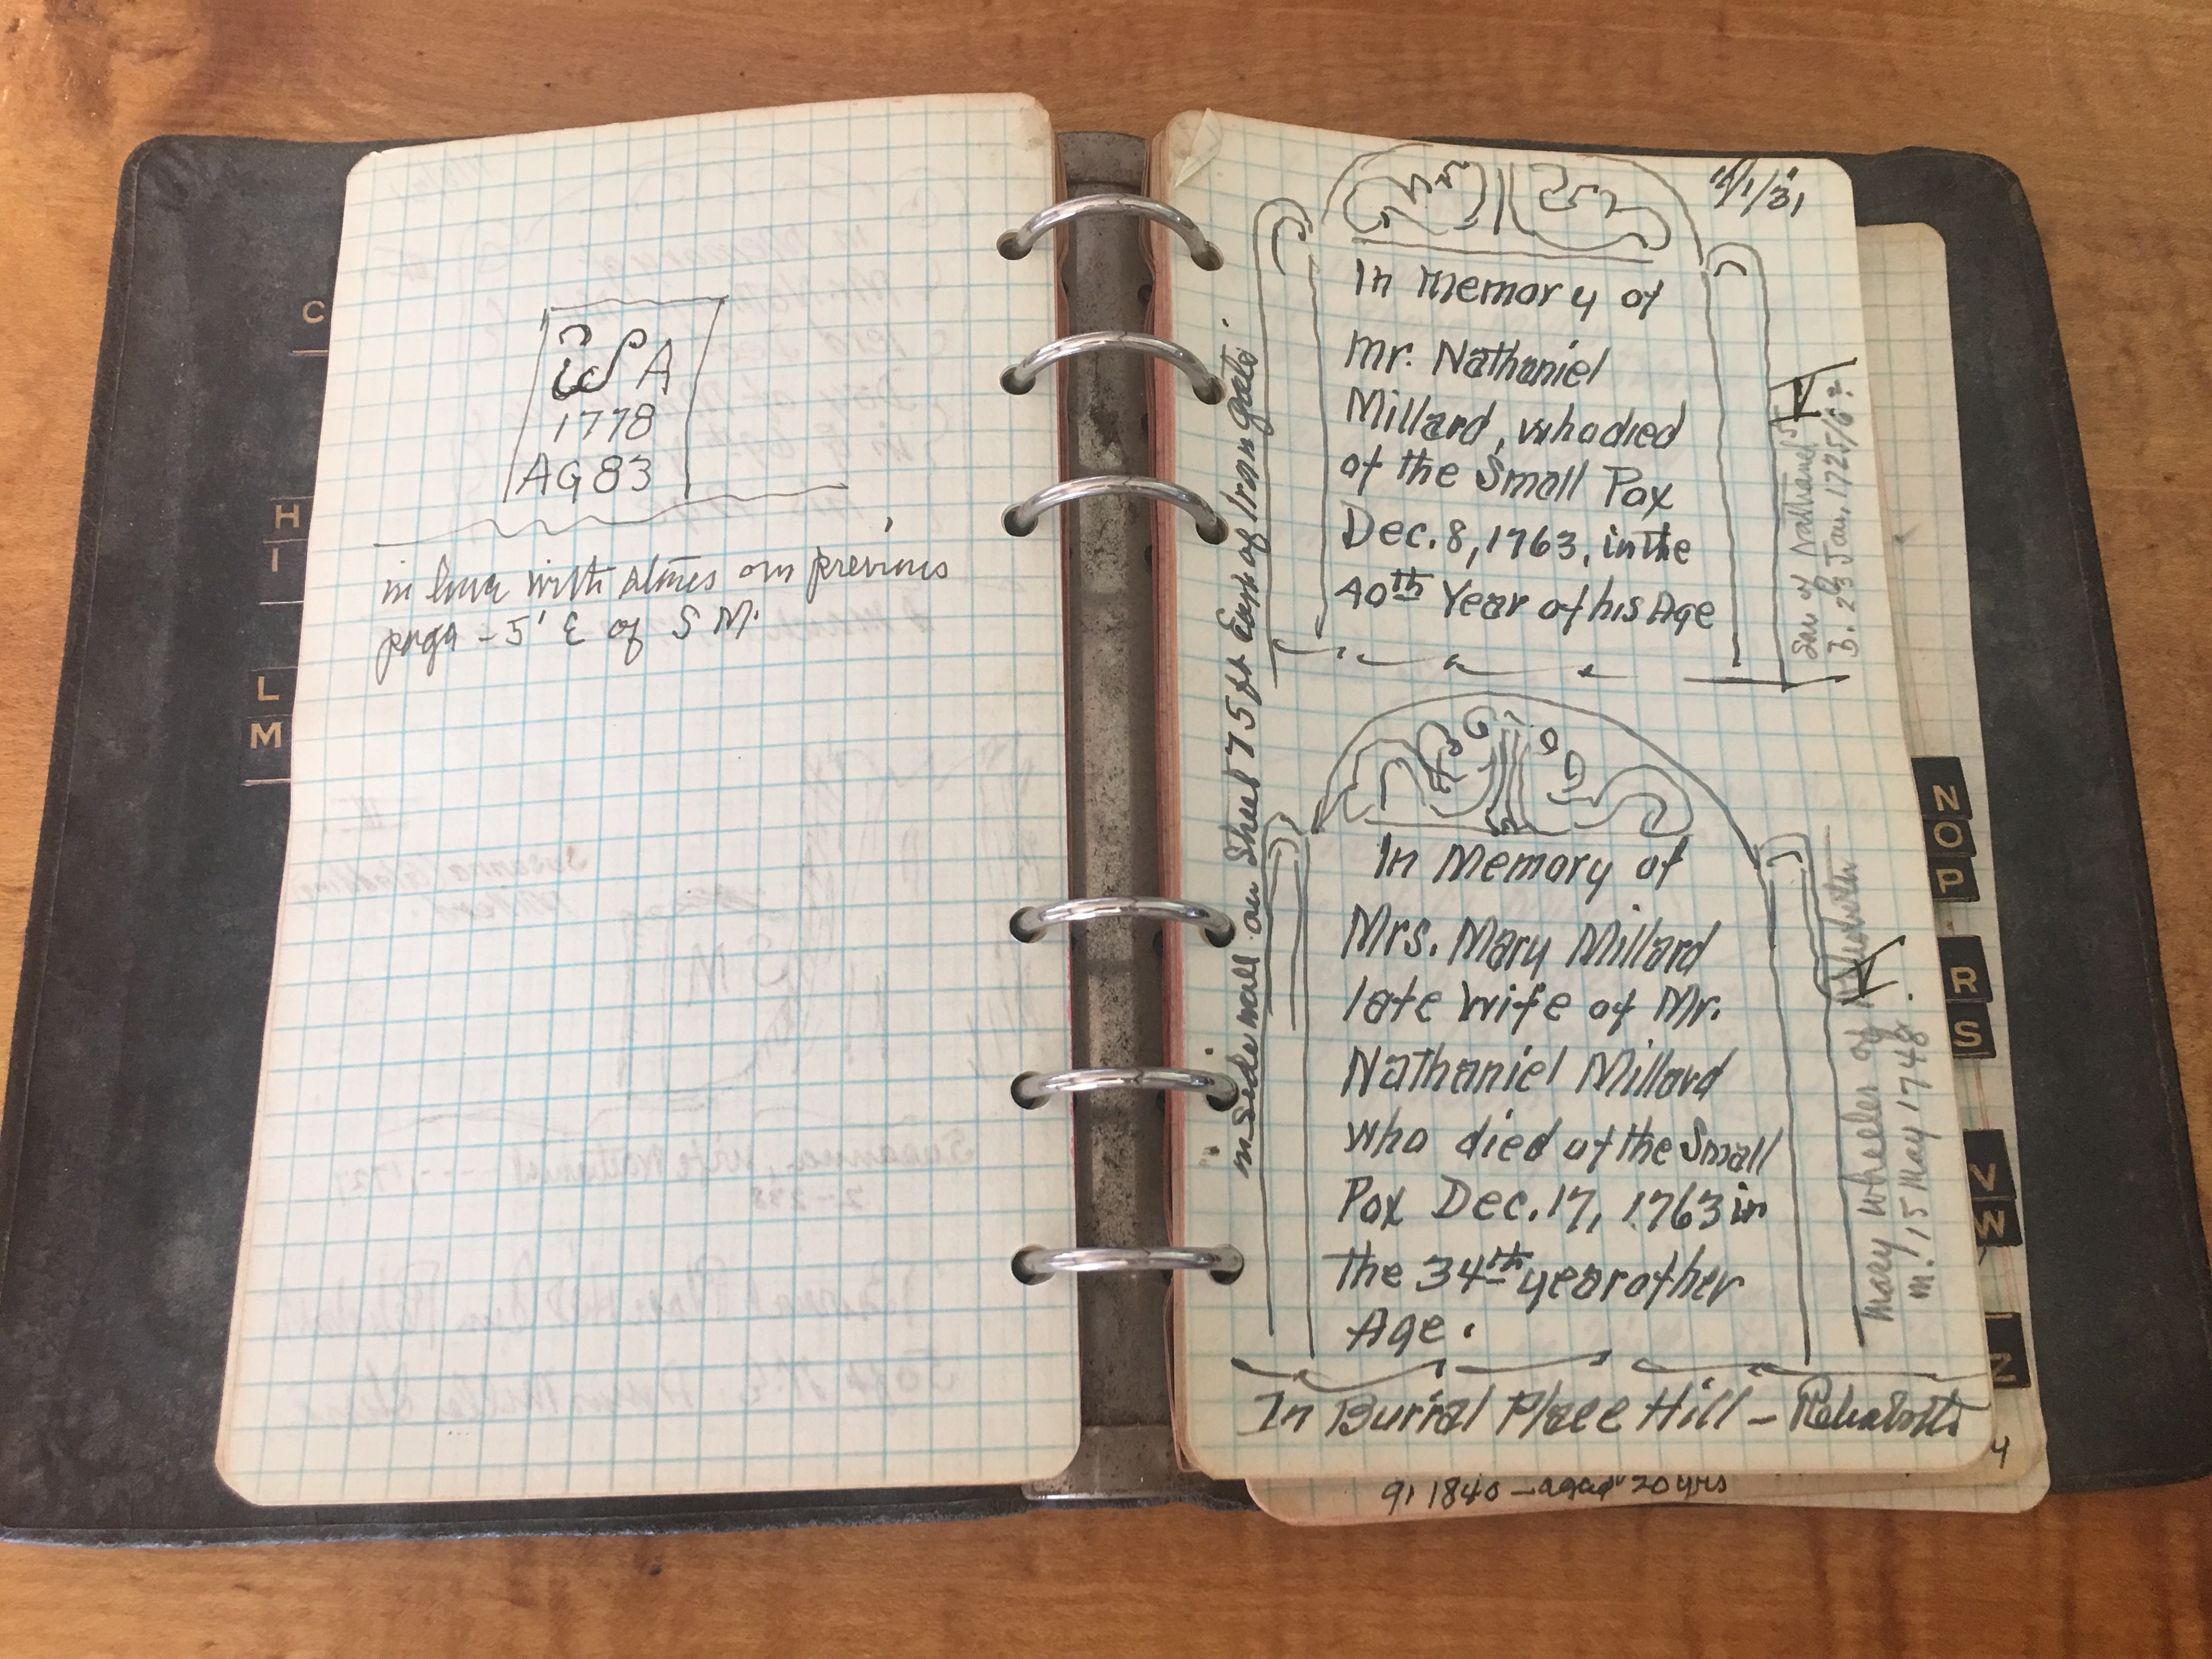 C
H
I
L
M
S A
1778
AG 83
in line with stones on previous
page - 5' E of S M.
11/1/31
In Memory of
Mr. Nathaniel
Millard, who died
of the Small Pox
Dec. 8, 1763, in the
40th Year of his Age
Son of Nathaniel
B. 23 Jan. 1725/6?
V
inside wall on Street 75 ft East of Iron gate.
In Memory of
Mrs. Mary Millard
late Wife of Mr.
Nathaniel Millard
who died of the Small
Pox Dec. 17, 1763 in
the 34th year of her
Age.
Mary Wheeler of Rehoboth
m. 15 May 1748.
V
In Burial Place Hill - Rehoboth
91 1840 - aged 20 yrs
4
N
O
P
R
S
V
W
Z